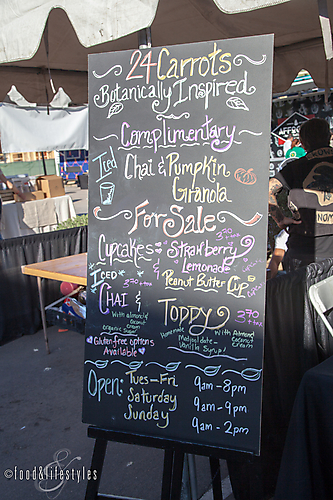 24 Carrots
Botanically Inspired
Complimentary
Iced Chai & Pumpkin
Granola
For Sale
Cupcakes Strawberry 3.70
Lemonade
Iced & Peanut Butter Cup
Chai & Toppy
With almond
Coconut
Cream
organic sugar
Homemade
Medjool date
Vanilla Syrup
With Almond
Coconut
Cream
Gluten free options
Available
Open: Tues-Fri 9am-8pm
Saturday 9am-9pm
Sunday 9am-2pm
©food&lifestyles